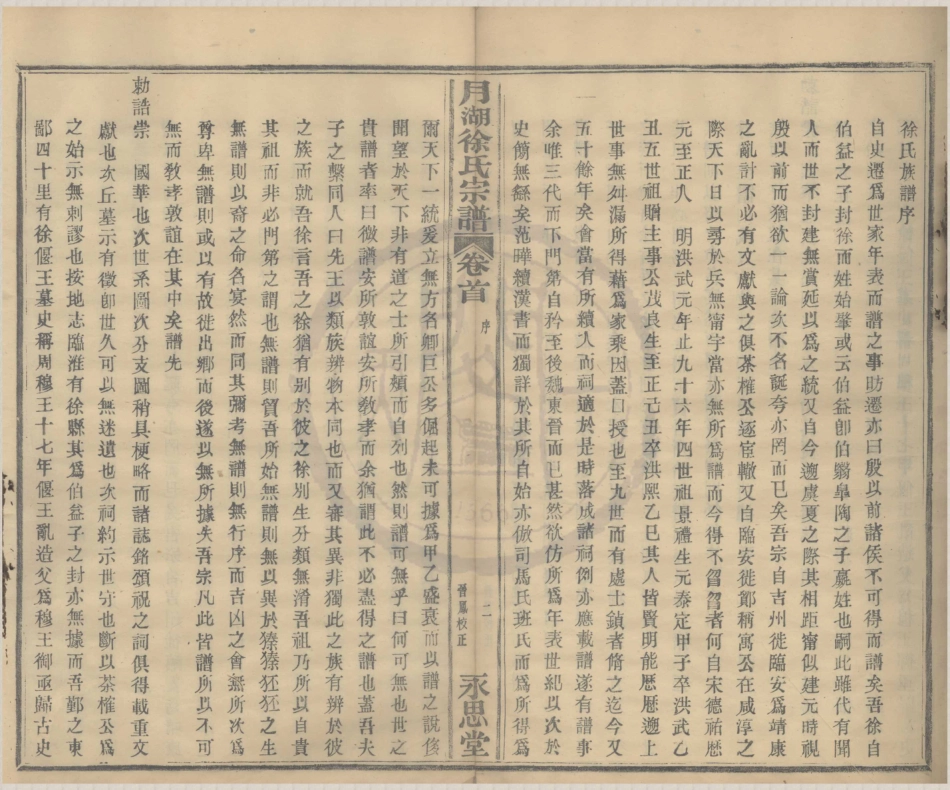 徐氏族譜序
自史遷爲世家年表而譜之事昉遷亦曰殷以前諸侯不可得而譜矣吾徐自
伯益之子封徐而姓始肇或云伯益卽伯翳臯陶之子嬴姓也嗣此雖代有聞
人而世不封建無賞延以爲之統又自今遡虞夏之際其相距甯似建元時視
殷以前而猶欲一一論次不名誕夸亦罔而已矣吾宗自吉州徙臨安爲靖康
之亂計不必有文獻與之俱茶榷公逐宦轍又自臨安徙鄞稱寓公在咸淳之
際天下日以尋於兵無甯宇當亦無所爲譜而今得不曶曶者何自宋德祐歴
元至正八　明洪武元年止九十六年四世祖景禮生元泰定甲子卒洪武乙
丑五世祖贈主事公茂良生至正己丑卒洪熙乙巳其人皆賢明能歴歴遡上
世事無舛漏所得藉爲家乘因蓋口授也至九世而有處士鎮者脩之迄今又
五十餘年矣會當有所續入而祠適於是時落成諸祠例亦應載譜遂有譜事
余唯三代而下門第自矜至後魏東晉而已甚然欲仿所爲年表世紀以次於
史簡無繇矣范曄續漢書而獨詳於其所自始亦倣司馬氏班氏而爲所得爲
月湖徐氏宗譜
卷首
序
二
晉鳳校正
永思堂
爾天下一統爰立無方名卿巨公多倔起未可據爲甲乙盛衰而以譜之說倏
聞望於天下非有道之士所引類而自列也然則譜可無乎曰何可無也世之
貴譜者率曰徵譜安所敦誼安所教孝而余猶謂此不必盡得之譜也蓋吾夫
子之繫同人曰先王以類族辨物本同也而又審其異非獨此之族有辨於彼
之族而就吾徐言吾之徐猶有别於彼之徐別生分類無淆吾祖乃所以自貴
其祖而非必門第之謂也無譜則貿吾所始無譜則無以異於獉獉狉狉之生
無譜則以裔之命名宴然而同其彌考無譜則無行序而吉凶之會無所次爲
尊卑無譜則或以有故徙出鄉而後遂以無所據失吾宗凡此皆譜所以不可
無而敎孝敦誼在其中矣譜先
勅誥崇　國華也次世系圖次分支圖稍具梗略而諸誌銘頌祝之詞俱得載重文
獻也次丘墓示有徵卽世久可以無迷遺也次祠約示世守也斷以茶榷公爲
之始示無刺謬也按地志臨淮有徐縣其爲伯益子之封亦無據而吾鄞之東
鄙四十里有徐偃王墓史稱周穆王十七年偃王亂造父爲穆王御亟歸古史